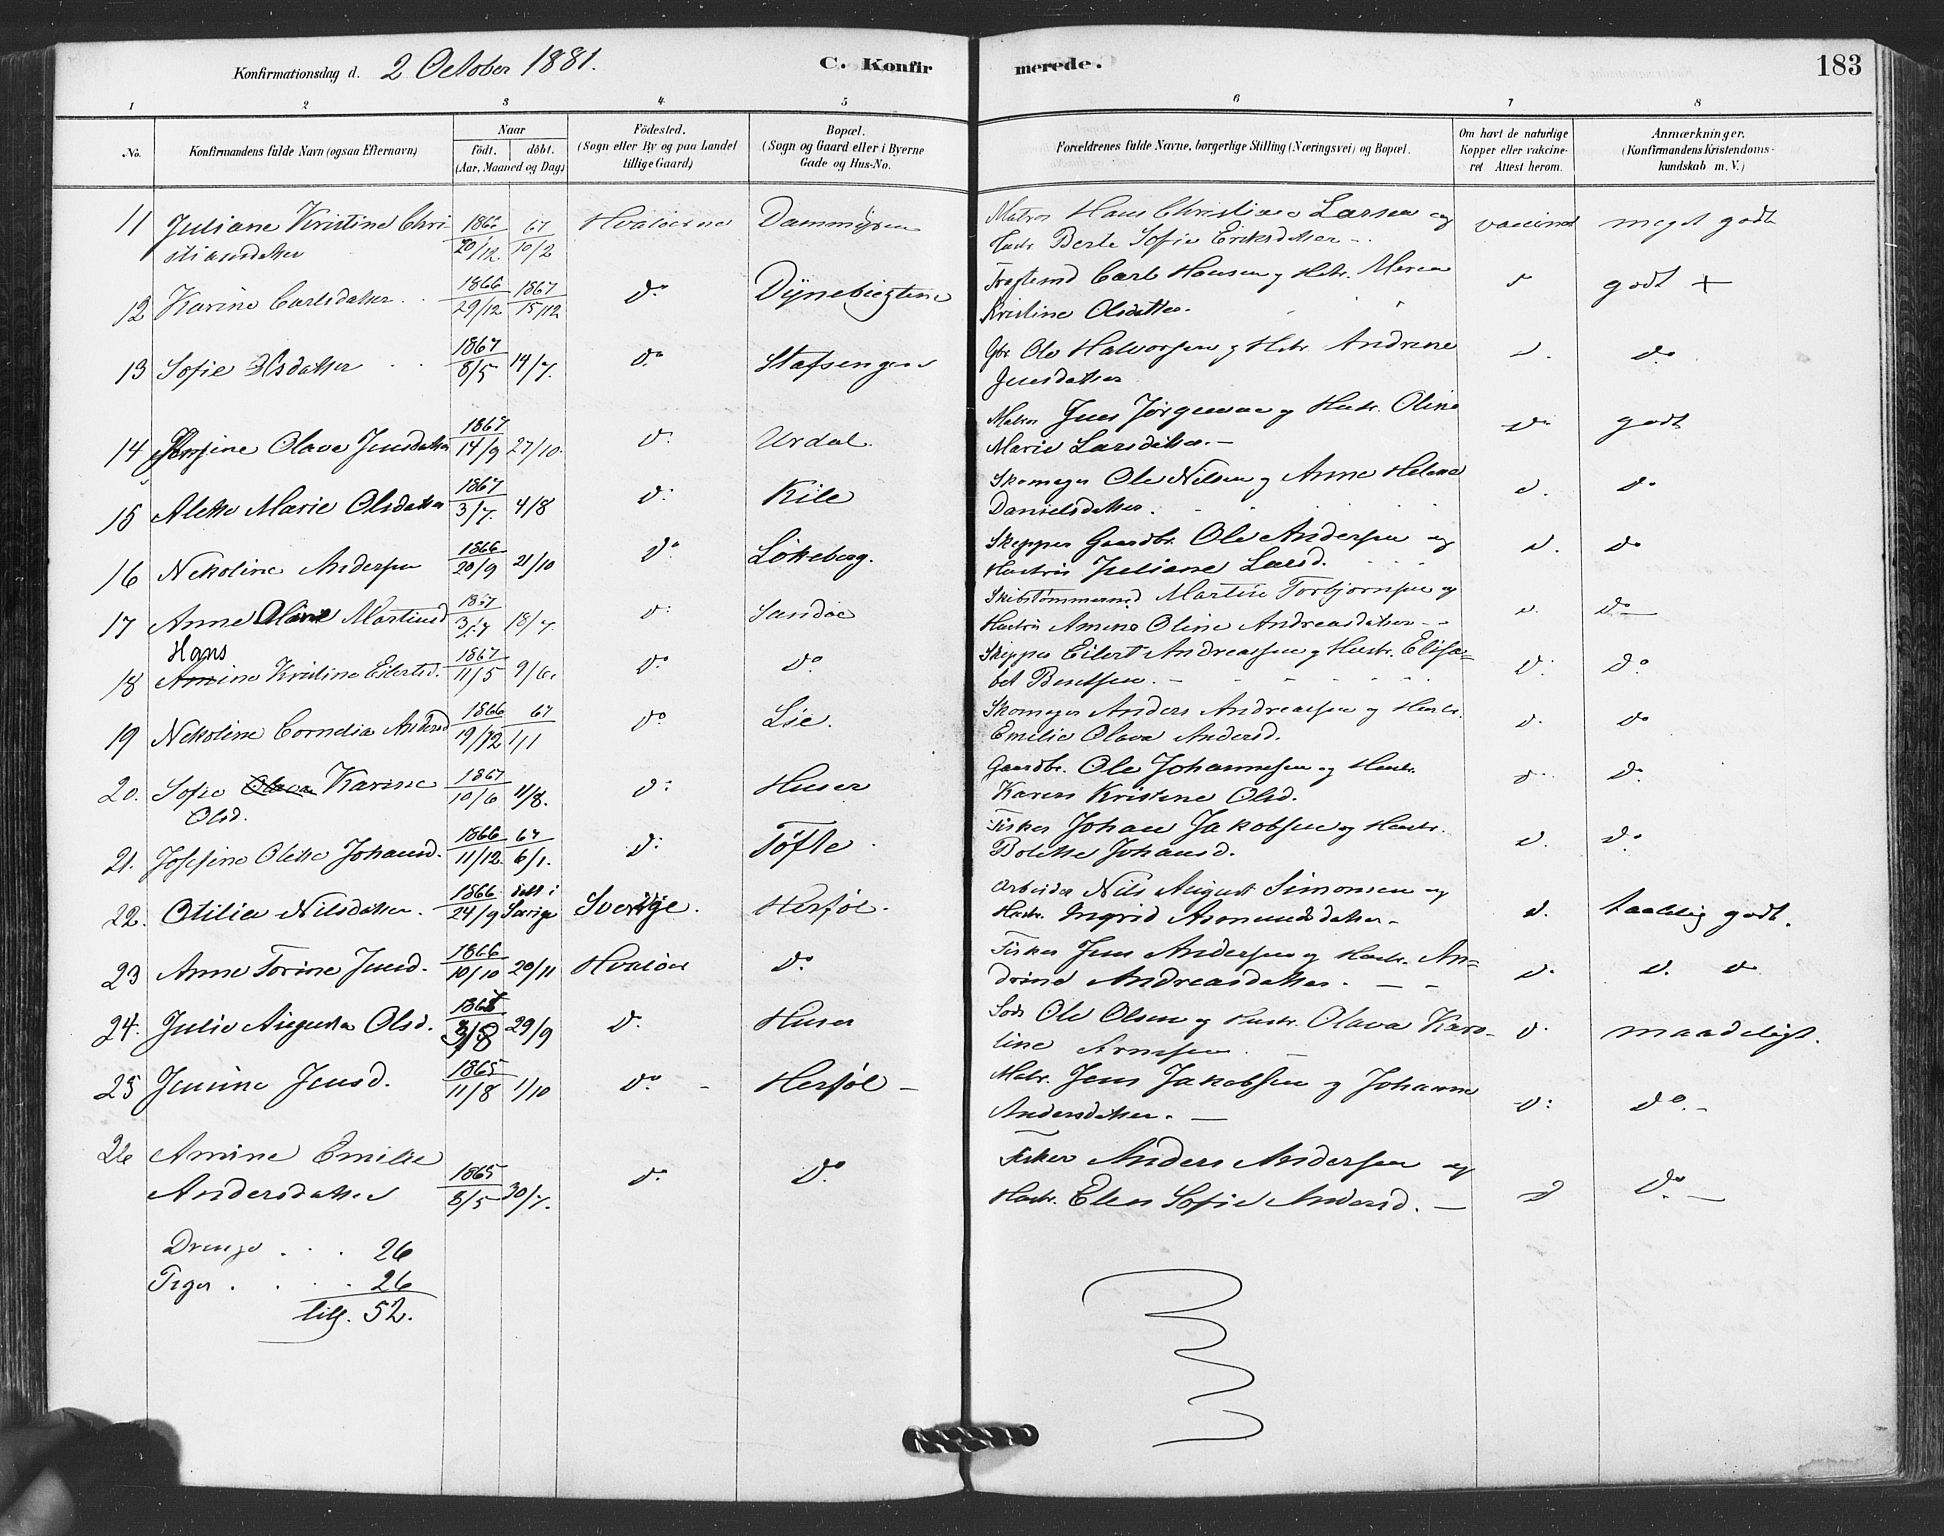 Konfirmationsdag d. 2 October 1881. C. Konfirmerede. 183
1 2 3 4 5 6 7 8
No. Konfirmandens fulde Navn (ogsaa Efternavn) Naar födt. döbt. (Aar, Maaned og Dag) Födested. (Sogn eller By og paa Landet tillige Gaard) Bopæl. (Sogn og Gaard eller i Byerne Gade og Hus-No. Forældrenes fulde Navne, borgerlige Stilling (Næringsvei) og Bopæl. Om havt de naturlige Kopper eller vakcineret Attest herom. Anmærkninger. (Konfirmandens Kristendomskundskab m. V.)
11 Juliane Kristine Chri 1866 67 Hvaløerne Dammyren Matros Hans Christian Larsen og vaccineret meget godt
stiansdatter 20/12 10/2 Hustr Berte Sofie Eriksdatter
12 Karine Carlsdatter 1866 1867 do Dynebugten Carl Hansen og Hstr. Maren godt +
29/12 15/12 Kristine Olsdatter.
13 Sofie Olsdatter 1867 do Stafsengen Gbr. Ole Halvorsen og Hstr. Andrine d. do
8/5 14/7. Jensdatter
14 Olava Jensdatter 1867 do Urdal. Matros Jens Jørgensen og Hustr. Oline do godt
14/9 27/10. Marie Larsdatter. —
15 Alette Marie Olsdatter 1867 do Kile Skomager Ole Nilsen og Anne Helene d. do
3/7. 4/8 Danielsdatter.
16 Nekoline Andersen 1866 do Løkeberg. Skipper Gaardbr. Ole Andersen og d. do
20/9 21/10 Hustru Juliane Larsd.
17 Anne Oline Martinsd 1867 do Sandøe Skibstømmermd Martin Torbjørnsen og d. do
3/7 18/7. Hustru Amine Oline Andreasdatter
Hans
18 Amine Kristine Eilertsd. 1867 do do Skipper Eilert Andreassen og Hustr. Elisa= d. do
11/5 9/6. bet Bentsen.
19 Nekoline Cornelia Andersd 1866 67 do Lie. Skomager Anders Andreassen og Hustr. d. do
19/12 1/1 Emilie Olava Andersd.
20. Sofie Olava Karine 1867 do Huser Gaardbr. Ole Johannesen og Hustr. d. do
Olsd. 10/6 11/8. Karen Kristine Olsd.
21. Josefine Olette Johansd. 1866 67 do Tøfte. Fisker Johan Jakobsen og Hustr. d. do
11/12. 6/1. Bolette Johansd.
22. Otilie Nilsdatter. 1866 døbt i Sverige. Herføl. Arbeider Nils August Simonsen og d. taalelig godt.
24/9 Sverige Hustr. Ingrid Asmundsdatter
23 Anne Torine Jensd. 1866 Hvaløer do Fisker Jens Andersen og Hustr. An= d. d. do
10/10 20/11 drine Andreasdatter.
24. Julie Augusta Olsd. 1867 do Huser Ole Olsen og Hustr. Olava Karo- d. maadeligt.
3/8 29/9 line Arnesen
25 Jensine Jensd. 1865 do Herføl Matr. Jens Jakobsen og Johanne d. do
11/8 1/10 Andersdatter.
26 Amine Emilie Fisker Anders Andersen og
Andersdatter 1865 do do Hustr. Elen Sofie Andersd. d do
8/5 30/7.
Drenge . . . 26
Piger . . . 26
till. 52.